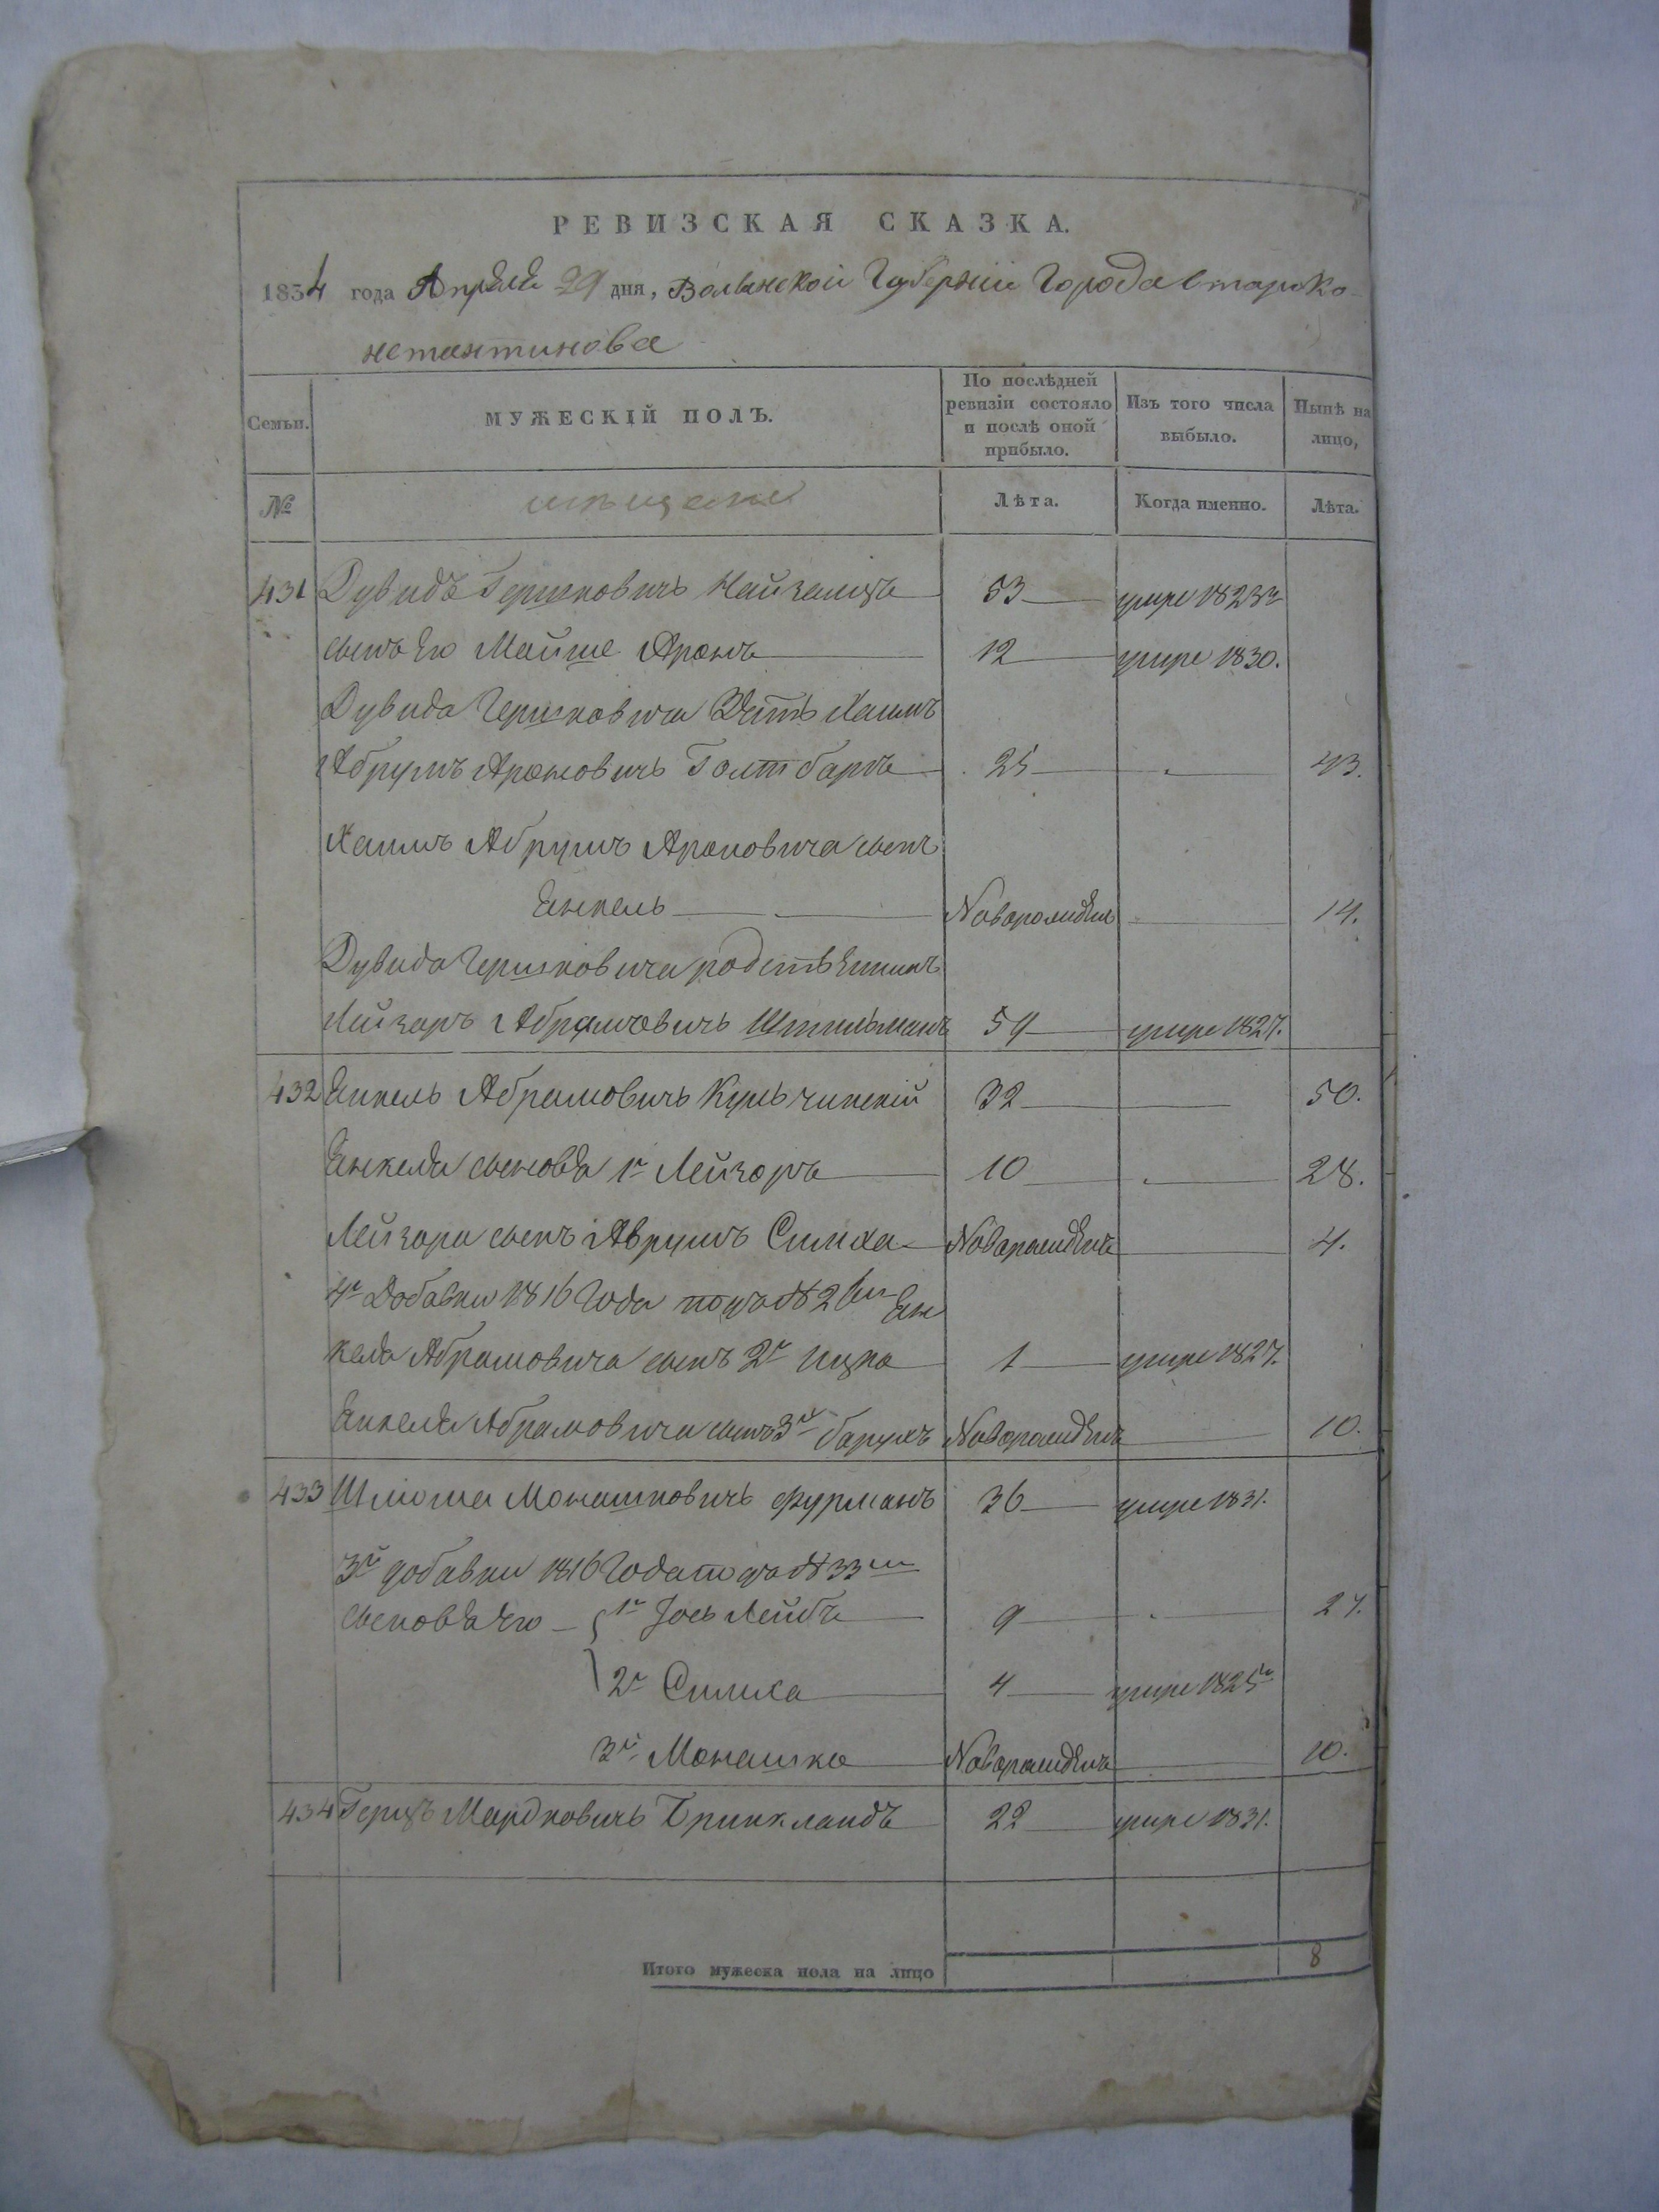 РЕВИЗСКАЯ СКАЗКА.
1834 года Апрѣля 29 дня, Волынской Губерніи Города Старако-
нстантинова
Семьи. МУЖЕСКІЙ ПОЛЪ. По послѣдней ревизіи состояло и послѣ оной прибыло. Изъ того числа выбыло. Нынѣ на лицо,
№ мѣщане Лѣта. Когда именно. Лѣта.
431 Дувидъ Гершковичъ 53 умре 1823г
сынъ Его Мойше Аронъ 12 умре 1830.
Дувида Гершковича Зять Хаимъ
Абрумъ Ароновичъ Голтбаръ 25 43.
Хаимъ Абрумъ Ароновича сынъ
Енкель Новорожденъ 14.
Дувида Гершковича родственникъ
Лейзоръ Абрамовичъ Штильманъ 59 умре 1827.
432 Енкель Абрамовичъ Кульчинскій 32 50.
Енкеля сыновья 1й Лейзоръ 10 28.
Лейзора сынъ Аврумъ Симха Новорожденъ 4.
4й Добавки 1816 Года подъ № 2м Ен
келя Абрамовича сынъ 2й Ицко 1 умре 1827.
Енкеля Абрамовича сынъ 3й Барухъ Новорожденъ 10.
433 Шліома Монашковичъ Фурманъ 36 умре 1831.
3й добавки 1816 Года подъ № 33м
сыновья Его 1й Іось Лейбъ 9 27.
2й Симха 4 умре 1825г
3й Монашко Новорожденъ 10.
434 Герцъ Мардковичъ Бринкландъ 22 умре 1831.
Итого мужеска пола на лицо 8